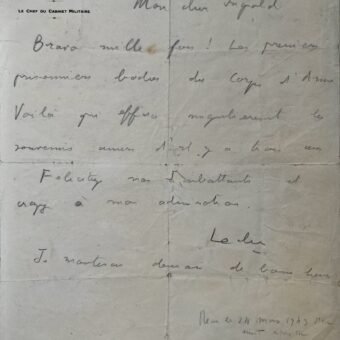 LE CHEF DU CABINET MILITAIRE
Mon cher Ingold
Bravo mille fois ! Les premiers
prisonniers boches du Corps d'Armée
Voilà qui efface magnifiquement les
souvenirs amers d'il y a trois ans
Félicitez nos combattants et
croyez à mon admiration.
Je monterai demain de bonne heure
Reçu le 24 mars 1943